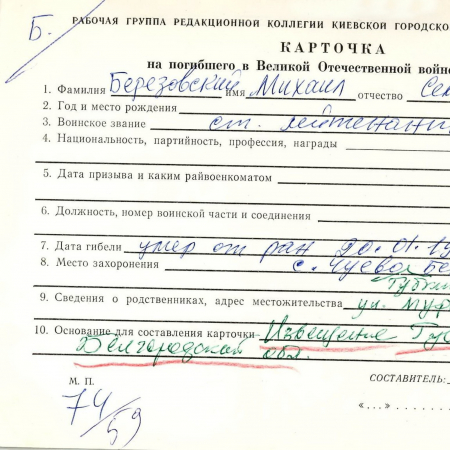 Б.
РАБОЧАЯ ГРУППА РЕДАКЦИОННОЙ КОЛЛЕГИИ КИЕВСКОЙ ГОРОДСКО
КАРТОЧКА
на погибшего в Великой Отечественной войне
1. Фамилия Березовский имя Михаил отчество Сем
2. Год и место рождения
3. Воинское звание ст. лейтенант
4. Национальность, партийность, профессия, награды
5. Дата призыва и каким райвоенкоматом
6. Должность, номер воинской части и соединения
7. Дата гибели умер от ран 20.01.19
8. Место захоронения с. Чуево Бе
Губкин
9. Сведения о родственниках, адрес местожительства ул.
10. Основание для составления карточки Извещение Губ
Белгородской обл.
М. П.
СОСТАВИТЕЛЬ:
«...»
74/59